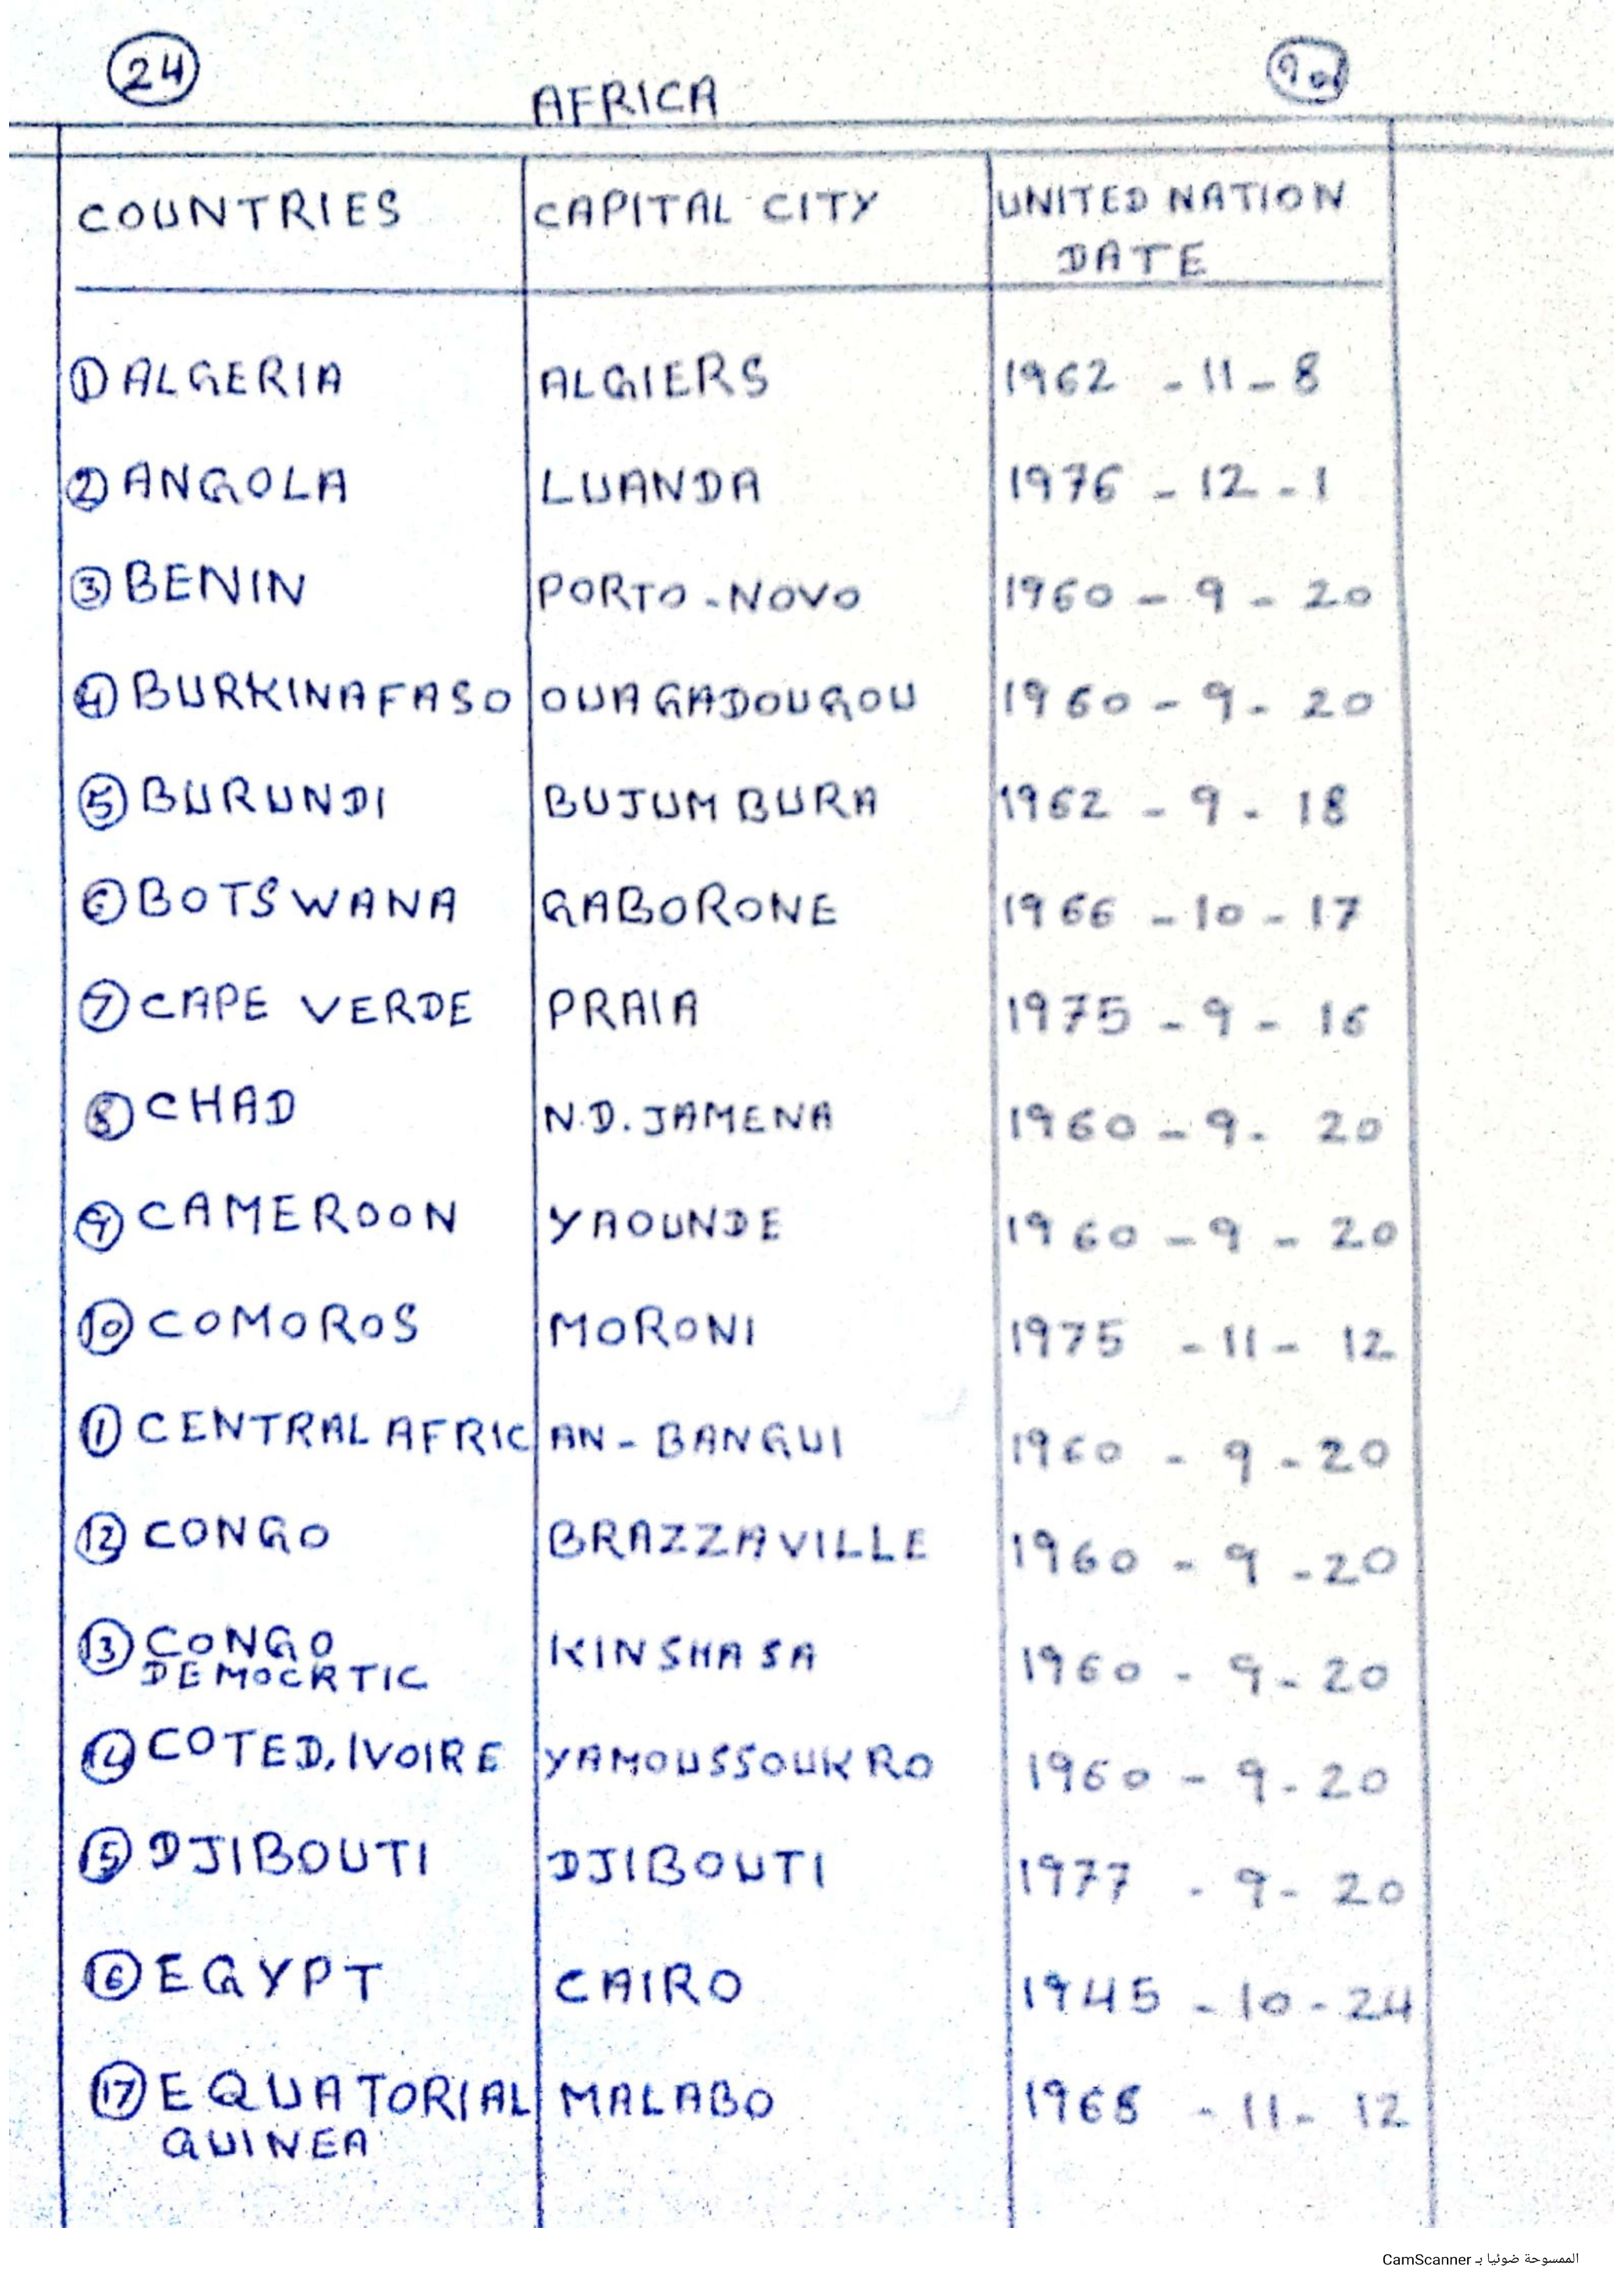 24
AFRICA
COUNTRIES CAPITAL CITY UNITED NATION
DATE
① ALGERIA ALGIERS 1962 - 11 - 8
② ANGOLA LUANDA 1976 - 12 - 1
③ BENIN PORTO - NOVO 1960 - 9 - 20
④ BURKINAFASO OUAGADOUGOU 1960 - 9 - 20
⑤ BURUNDI BUJUMBURA 1962 - 9 - 18
⑥ BOTSWANA GABORONE 1966 - 10 - 17
⑦ CAPE VERDE PRAIA 1975 - 9 - 16
⑧ CHAD N.D. JAMENA 1960 - 9 - 20
⑨ CAMEROON YAOUNDE 1960 - 9 - 20
⑩ COMOROS MORONI 1975 - 11 - 12
① CENTRAL AFRICAN - BANGUI 1960 - 9 - 20
⑫ CONGO BRAZZAVILLE 1960 - 9 - 20
⑬ CONGO KINSHASA 1960 - 9 - 20
DEMOCRTIC
⑭ COTED, IVOIRE YAMOUSSOUKRO 1960 - 9 - 20
⑮ DJIBOUTI DJIBOUTI 1977 - 9 - 20
⑯ EGYPT CAIRO 1945 - 10 - 24
⑰ EQUATORIAL MALABO 1968 - 11 - 12
GUINEA
الممسوحة ضوئيا بـ CamScanner